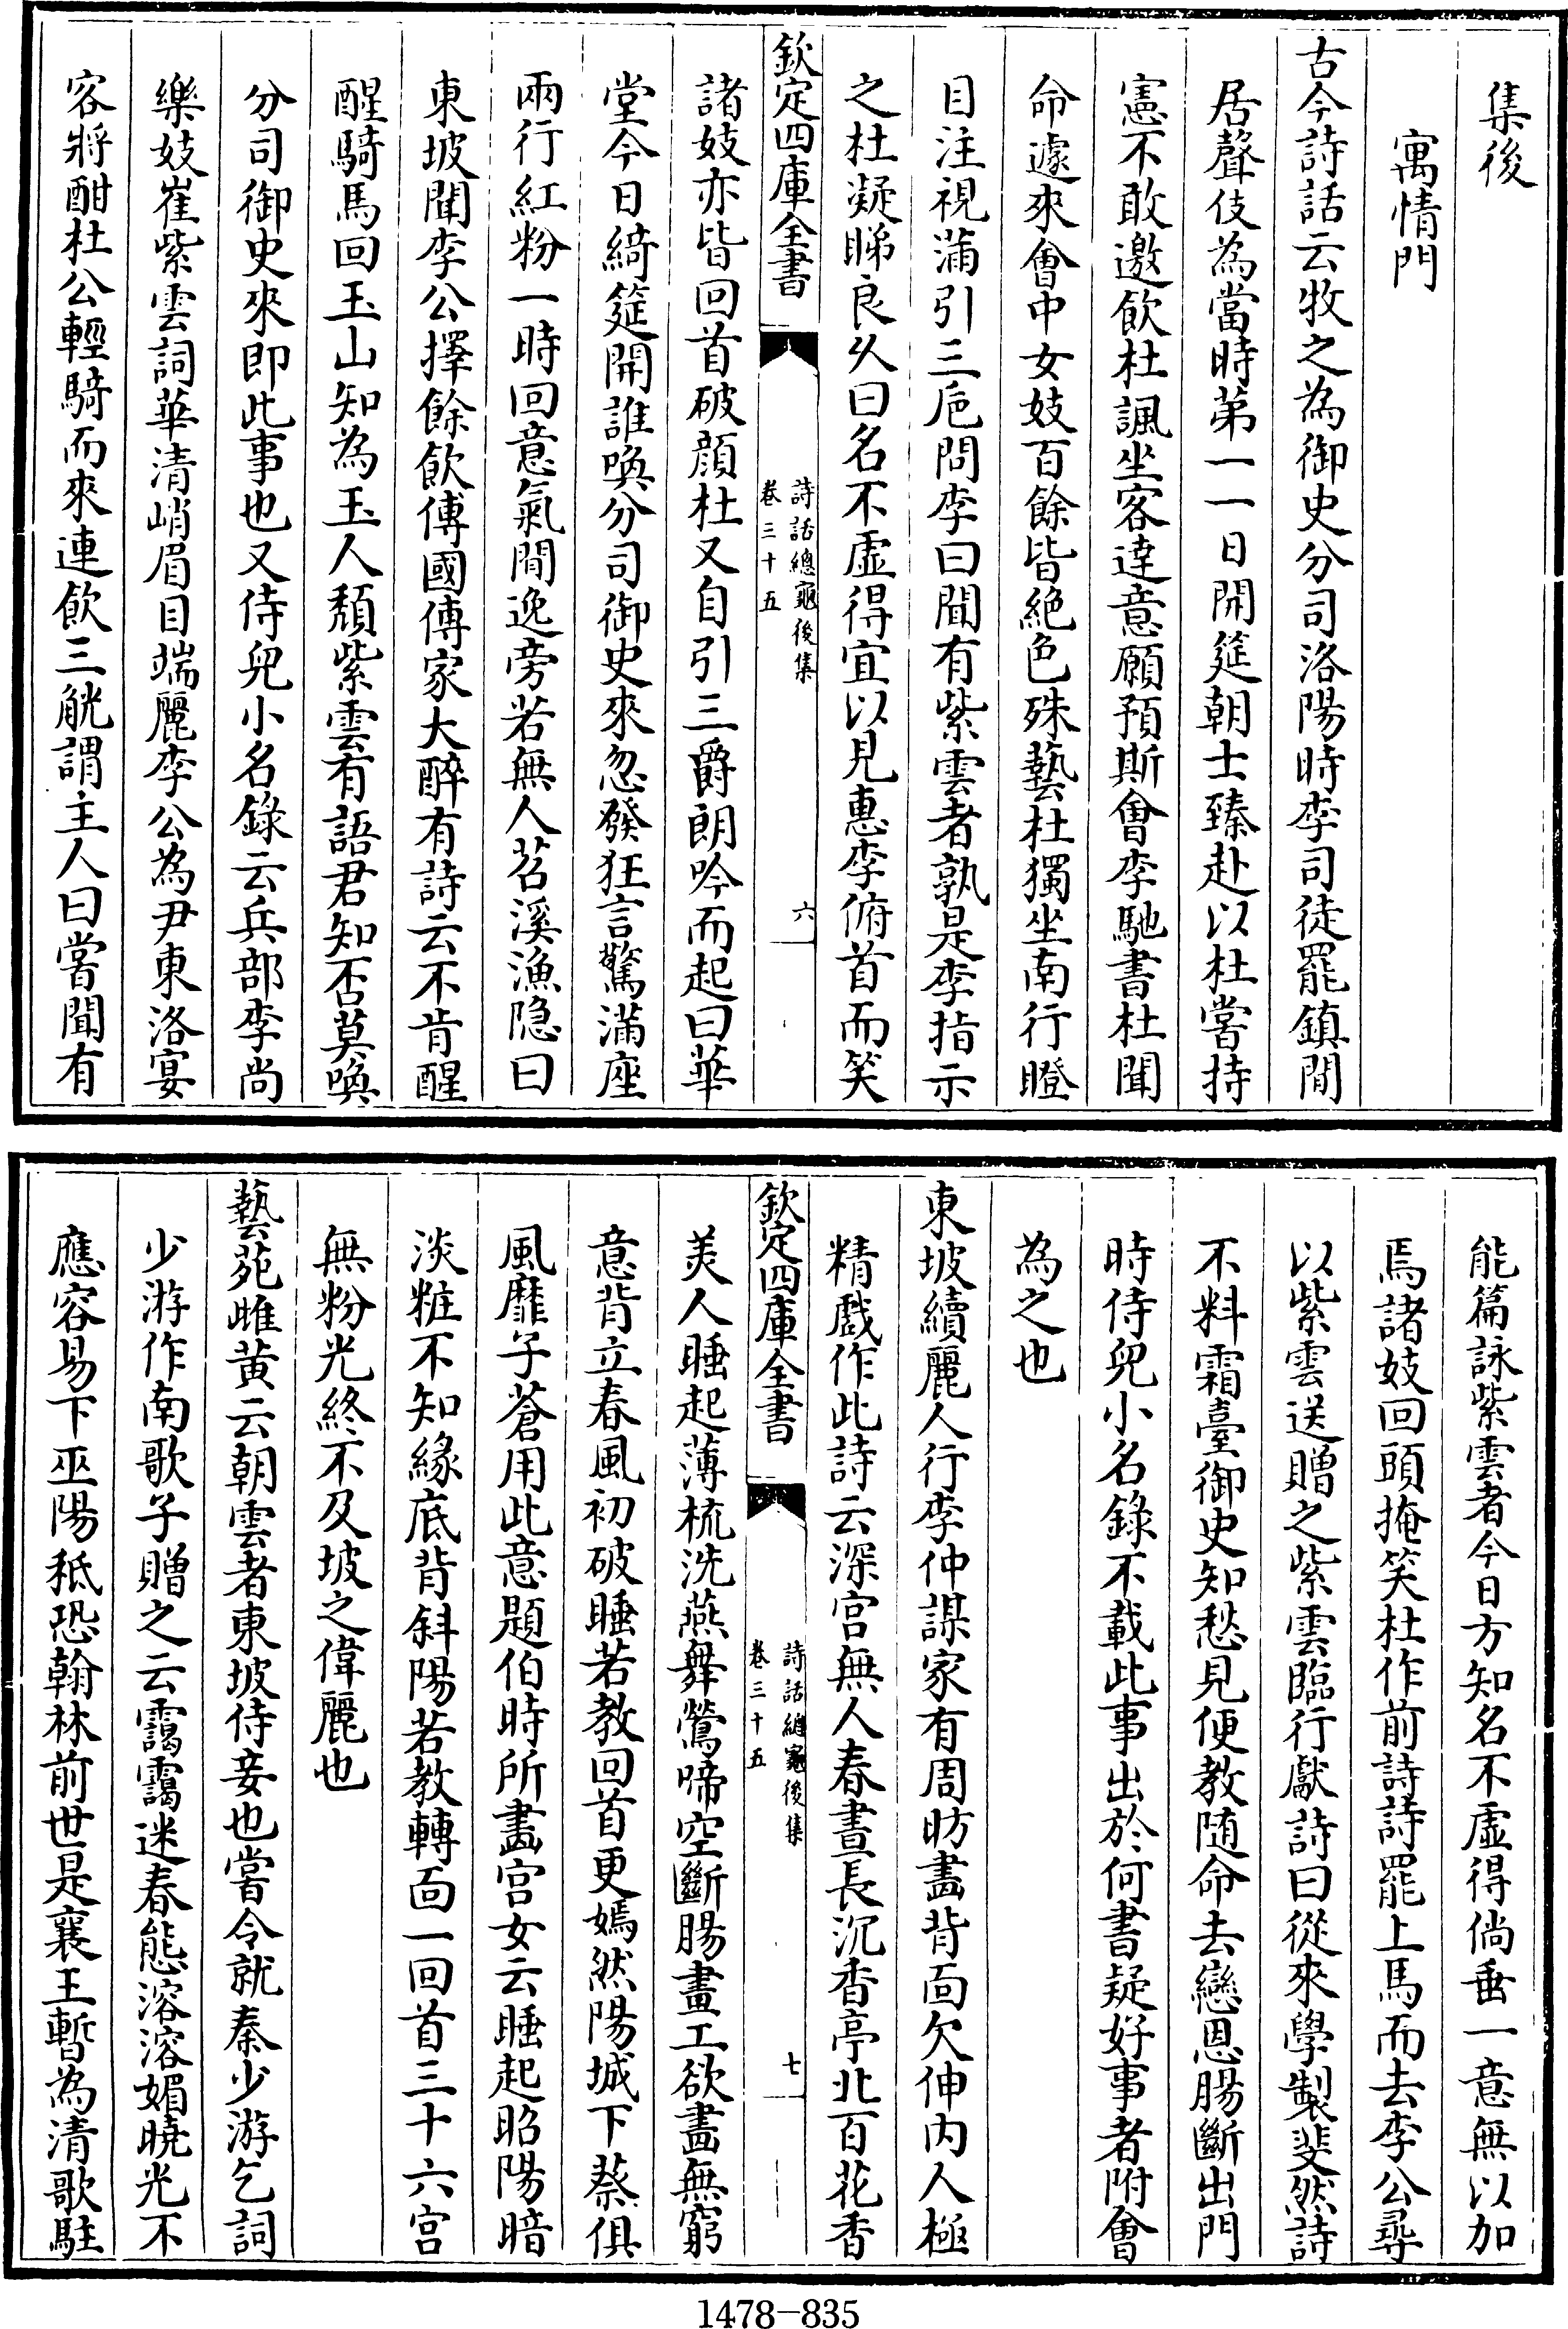 集後
寓情門
古今詩話云牧之為御史分司洛陽時李司徒罷鎮閒
居聲伎為當時第一一日開筵朝士臻赴以杜嘗持
憲不敢邀飲杜諷坐客達意願預斯會李馳書杜聞
命遽來會中女妓百餘皆絶色殊藝杜獨坐南行瞪
目注視滿引三巵問李曰聞有紫雲者孰是李指示
之杜凝睇良久曰名不虚得宜以見惠李俯首而笑
欽定四庫全書
詩話總龜後集
卷三十五
六
諸妓亦皆回首破顔杜又自引三爵朗吟而起曰華
堂今日綺筵開誰喚分司御史來忽發狂言驚滿座
兩行紅粉一時回意氣閒逸旁若無人苕溪漁隐曰
東坡聞李公擇餘飲傅國傅家大醉有詩云不肯醒
醒騎馬回玉山知為玉人頽紫雲有語君知否莫喚
分司御史來即此事也又侍兒小名錄云兵部李尚
樂妓崔紫雲詞華清峭眉目端麗李公為尹東洛宴
客將酣杜公輕騎而來連飲三觥謂主人曰嘗聞有
能篇詠紫雲者今日方知名不虚得倘垂一意無以加
焉諸妓回頭掩笑杜作前詩詩罷上馬而去李公尋
以紫雲送贈之紫雲臨行獻詩曰從來學製斐然詩
不料霜臺御史知愁見便教随命去戀恩腸斷出門
時侍兒小名錄不載此事出於何書疑好事者附會
為之也
東坡續麗人行李仲謀家有周昉畵背面欠伸内人極
精戲作此詩云深宫無人春晝長沉香亭北百花香
欽定四庫全書
詩話總龜後集
卷三十五
七
美人睡起薄梳洗燕舞鶯啼空斷腸畫工欲畵無窮
意背立春風初破睡若教回首更嫣然陽城下蔡俱
風靡子蒼用此意題伯時所畵宫女云睡起昭陽暗
淡粧不知緣底背斜陽若教轉面一回首三十六宫
無粉光終不及坡之偉麗也
藝苑雌黄云朝雲者東坡侍妾也嘗令就秦少游乞詞
少游作南歌子贈之云靄靄迷春態溶溶媚曉光不
應容易下巫陽秪恐翰林前世是襄王暫為清歌駐
1478-835